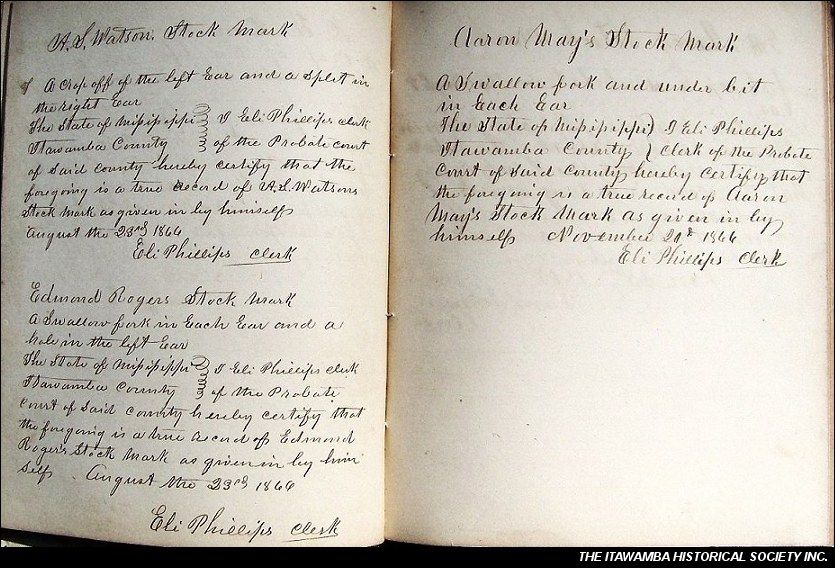 A. S. Watson. Stock Mark
A Crop off of the left Ear and a Split in
the right Ear
The State of Mississippi I Eli Phillips clerk
Itawamba County of the Probate court
of Said county hereby certify that the
foregoing is a true Record of A. S. Watsons
Stock Mark as given in by himself
August the 23rd 1866
Eli Phillips Clerk
Edmond Rogers Stock Mark
A Swallow fork in Each Ear and a
hole in the left Ear
The State of Mississippi I Eli Phillips clerk
Itawamba County of the Probate
Court of Said county hereby certify that
the foregoing is a true Record of Edmond
Roger's Stock Mark as given in by him
Self August the 23rd 1866
Eli Phillips Clerk
Aaron May's Stock Mark
A Swallow fork and under bit
in Each Ear
The State of Mississippi ) I Eli Phillips
Itawamba County } Clerk of the Probate
Court of Said County hereby certify that
the foregoing is a true record of Aaron
May's Stock Mark as given in by
himself November 1866
Eli Phillips Clerk
THE ITAWAMBA HISTORICAL SOCIETY INC.